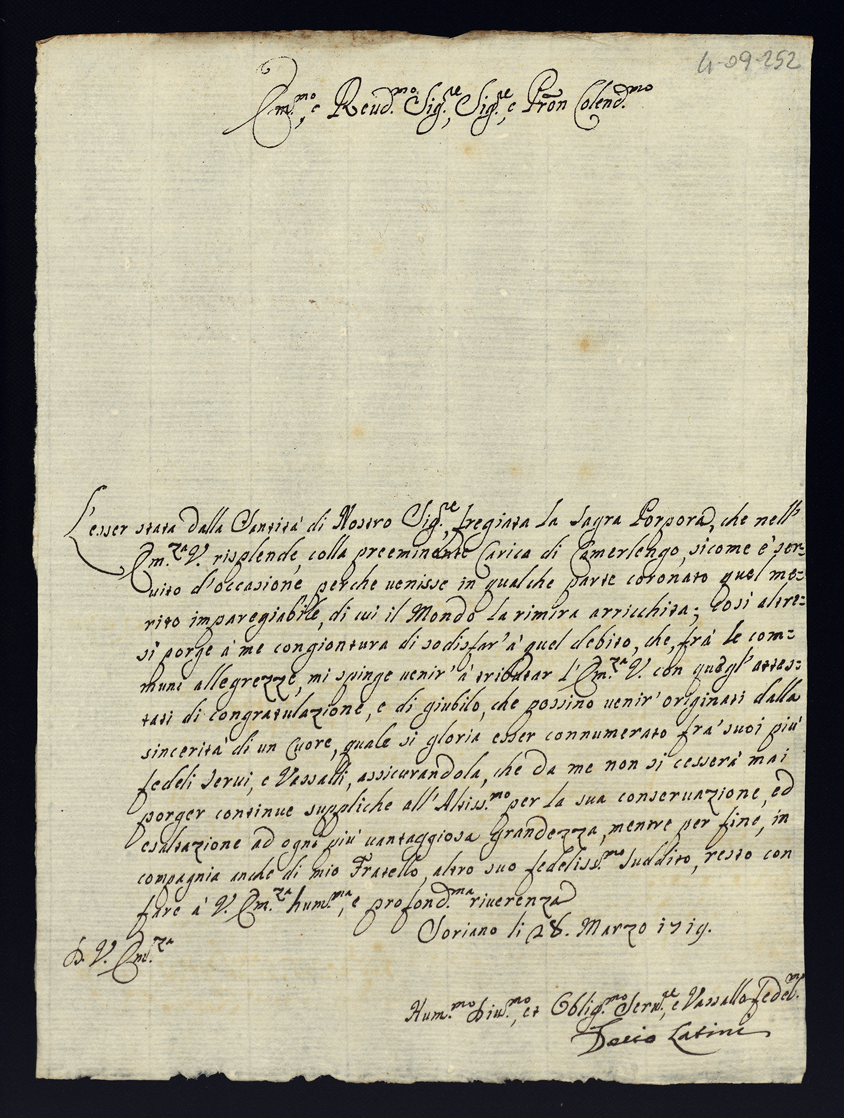 4-09-252
Em.mo, e Reud.mo Sig.re, Sig.re, e Pron Colend.mo
L'esser stata dalla Santità di Nostro Sig.re fregiata la sagra Porpora, che nell'
Em.za V. risplende, colla preeminente Carica di Camerlengo, sicome è ser=
uito d'occasione, perche uenisse in qualche parte coronato quel me=
rito impareggiabile, di cui il Mondo la rimira arricchita; Così altre=
si porge à me congiontura di sodisfar' à quel debito, che, frà le com=
muni allegrezze, mi spinge uenir' à tributar l'Em.za V. con quegl' attes=
tati di congratulazione, e di giubilo, che possino uenir' originati dalla
sincerità di un Cuore, quale si gloria esser connumerato frà suoi più
fedeli serui, e Vassalli, assicurandola, che da me non si cesserà mai
porger continue suppliche all'Altiss.mo per la sua conseruazione, ed
esaltazione ad ogni più uantaggiosa Grandezza, mentre per fine, in
compagnia anche di mio Fratello, altro suo fedeliss.mo suddito, resto con
fare à V. Em.za hum.ma, e profond.ma riuerenza
Soriano li 28. Marzo 1719.
D. V. Em.za
Hum.mo Diu.mo, et Oblig.mo Seru.re, e Vassallo fedel.mo
Decio Latini